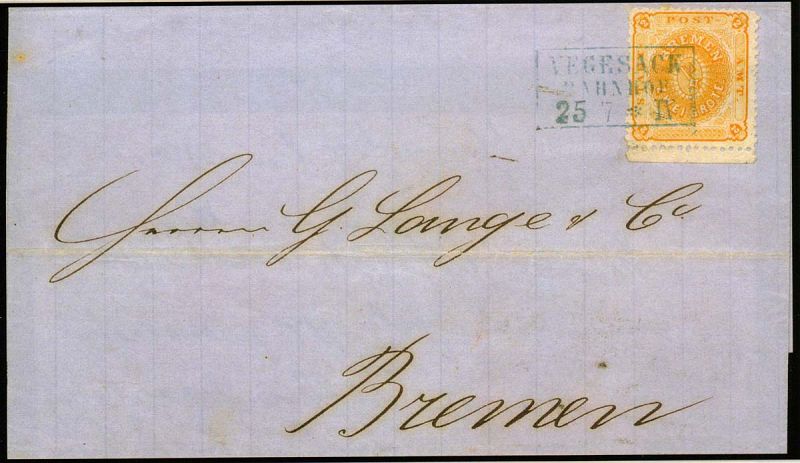 POST
BREMEN
AMT
ZWEI GROTE
VEGESACK
BAHNHOF
25 7 * II
Herrn G. Lange & Co
Bremen